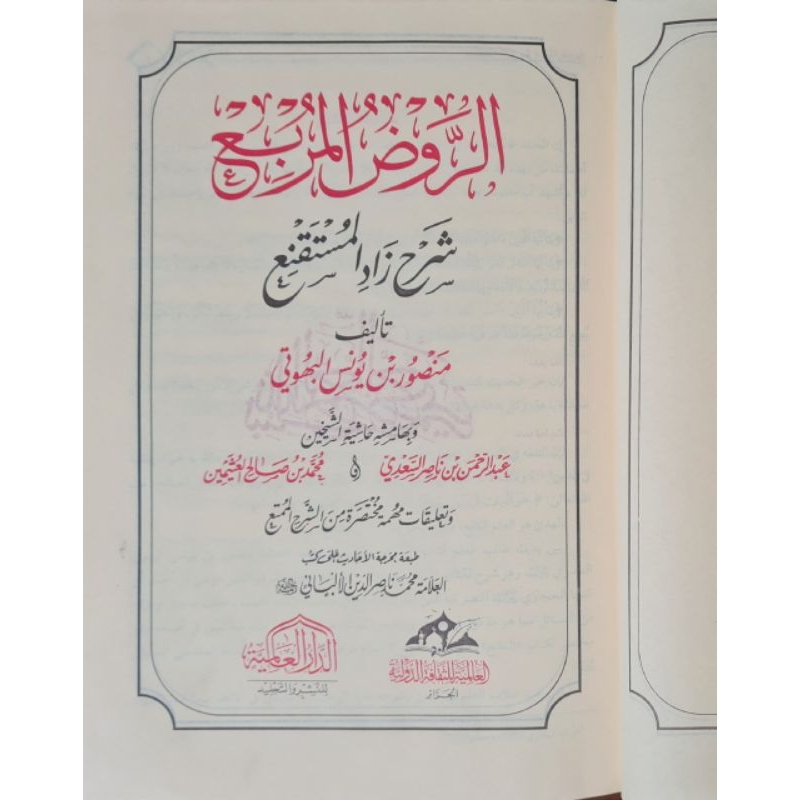 الرَّوضُ المُربِع
شَرْح زَادِ المُسْتَقْنِع
تأليف
مَنصُور بْن يُونُس البُهُوتي
وبهامشه حاشية الشيخين
عبد الرحمن بن ناصر السَّعدي و محمد بن صالح العثيمين
وتعليقات مهمة مختصرة من الشرح الممتع
طبعة مخرجة الأحاديث على كتب
العلامة محمد ناصر الدين الألباني
الدار العالمية
للنشر والتجليد
العالمية للثقافة الدولية
الجزائر